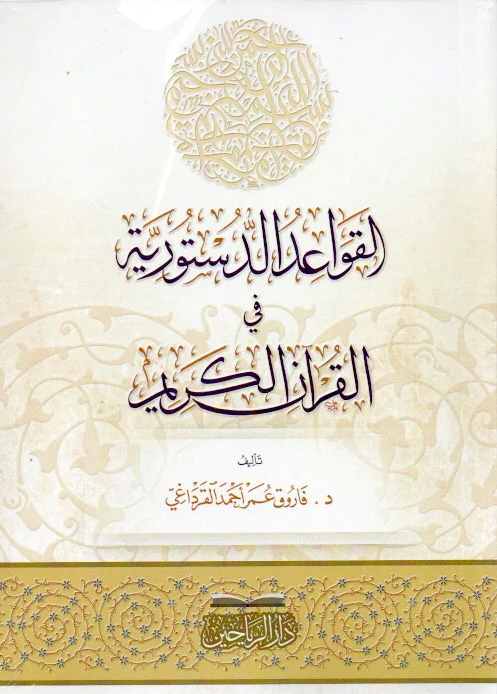 القَوَاعِدُ الدُّسْتُورِيَّة
في
القُرآنِ الكَرِيمِ
تَأليفُ
د. فَارُوق عُمَر أَحْمَد القَرَدَاغِي
دَارُ الرَّيَاحِين